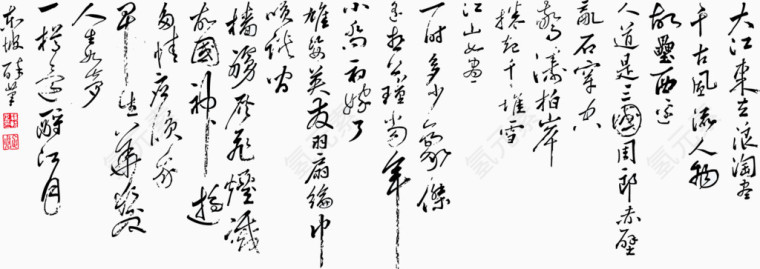 大江東去浪淘盡
千古風流人物
故壘西邊
人道是三國周郎赤壁
亂石穿空
驚濤拍岸
捲起千堆雪
江山如畫
一時多少豪傑
遙想公瑾當年
小喬初嫁了
雄姿英發羽扇綸巾
談笑間
檣櫓灰飛煙滅
故國神遊
多情應笑我
早生華髮
人生如夢
一樽還酹江月
東坡醉筆